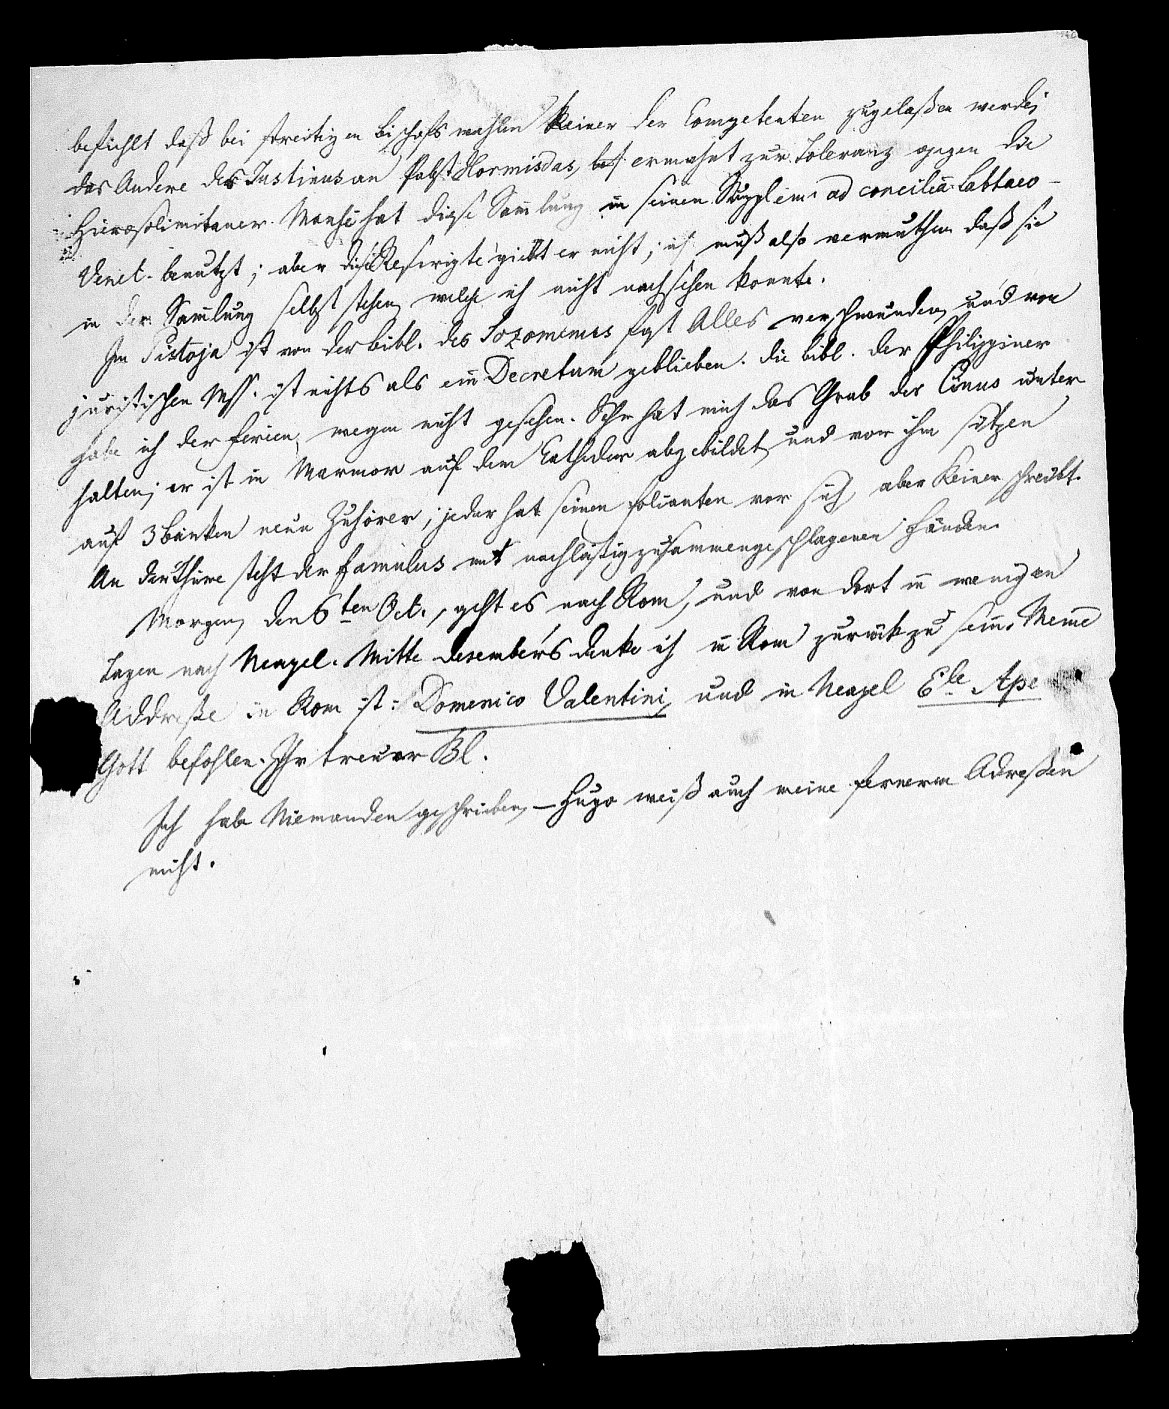 befiehlt daß bei streitigen Bischofswahlen keiner der Competenten zugelaßen werde;
das Andere des Justinus an Pabst Hormisdas, ermahnt zur Toleranz gegen die
Hierosolimitaner. Mansi hat diese Sammlung in seinen Supplem. ad concilia Labbaeo-
Venet. benutzt; aber diese Rescripte giebt er nicht; ich muß also vermuthen daß sie
in der Sammlung selbst stehen, welche ich nicht nachsehen konnte.
In Pistoja ist von der Bibl. des Sozomenus fast Alles verschwunden, und von
juristischen Mss. ist nichts als ein Decretum geblieben. Die Bibl. der Philippiner
habe ich der Ferien wegen nicht gesehen. Sehr hat mich das Grab des Cinus unter-
halten; er ist in Marmor auf dem Catheder abgebildet, und vor ihm sitzen
auf 3 Bänken neun Zuhörer; jeder hat seinen Folianten vor sich, aber keiner schreibt.
An der Thüre steht der Famulus mit nachläßig zusammengeschlagenen Händen.
Morgen, den 6ten Oct., geht es nach Rom, und von dort in wenigen
Tagen nach Neapel. Mitte Desember's denke ich in Rom zurück zu sein. Meine
Addreße in Rom ist: Domenico Valentini, und in Neapel Ele Ape
Gott befohlen. Ihr treuer Bl.
Ich habe Niemanden geschrieben, – Hugo weiß auch meine ferneren Adreßen
nicht.